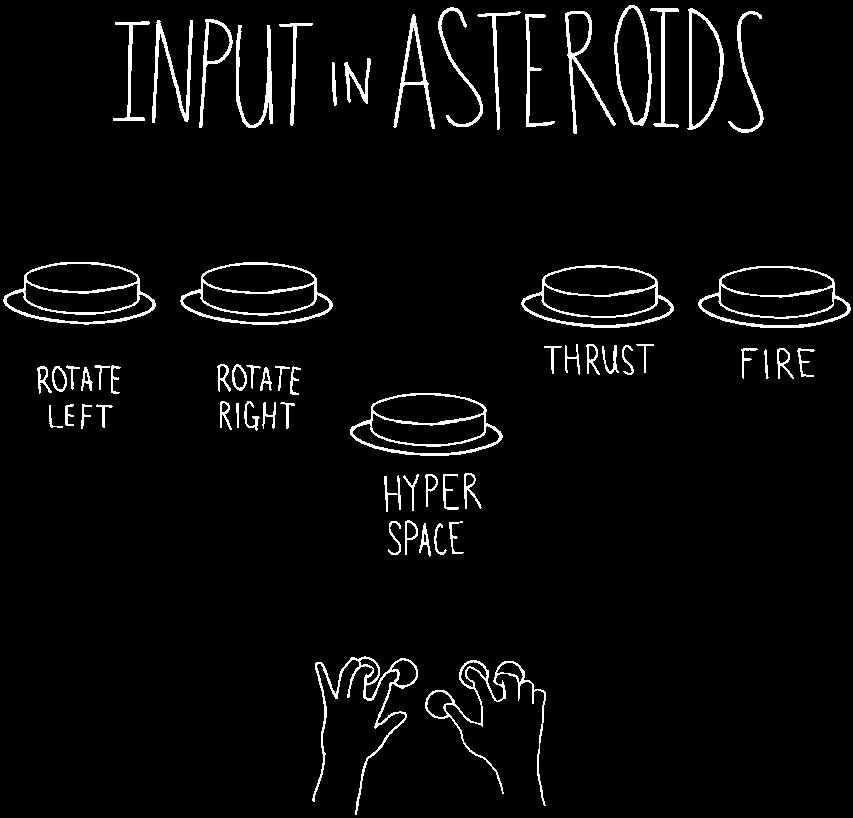 INPUT IN ASTEROIDS
ROTATE
LEFT
ROTATE
RIGHT
HYPER
SPACE
THRUST
FIRE